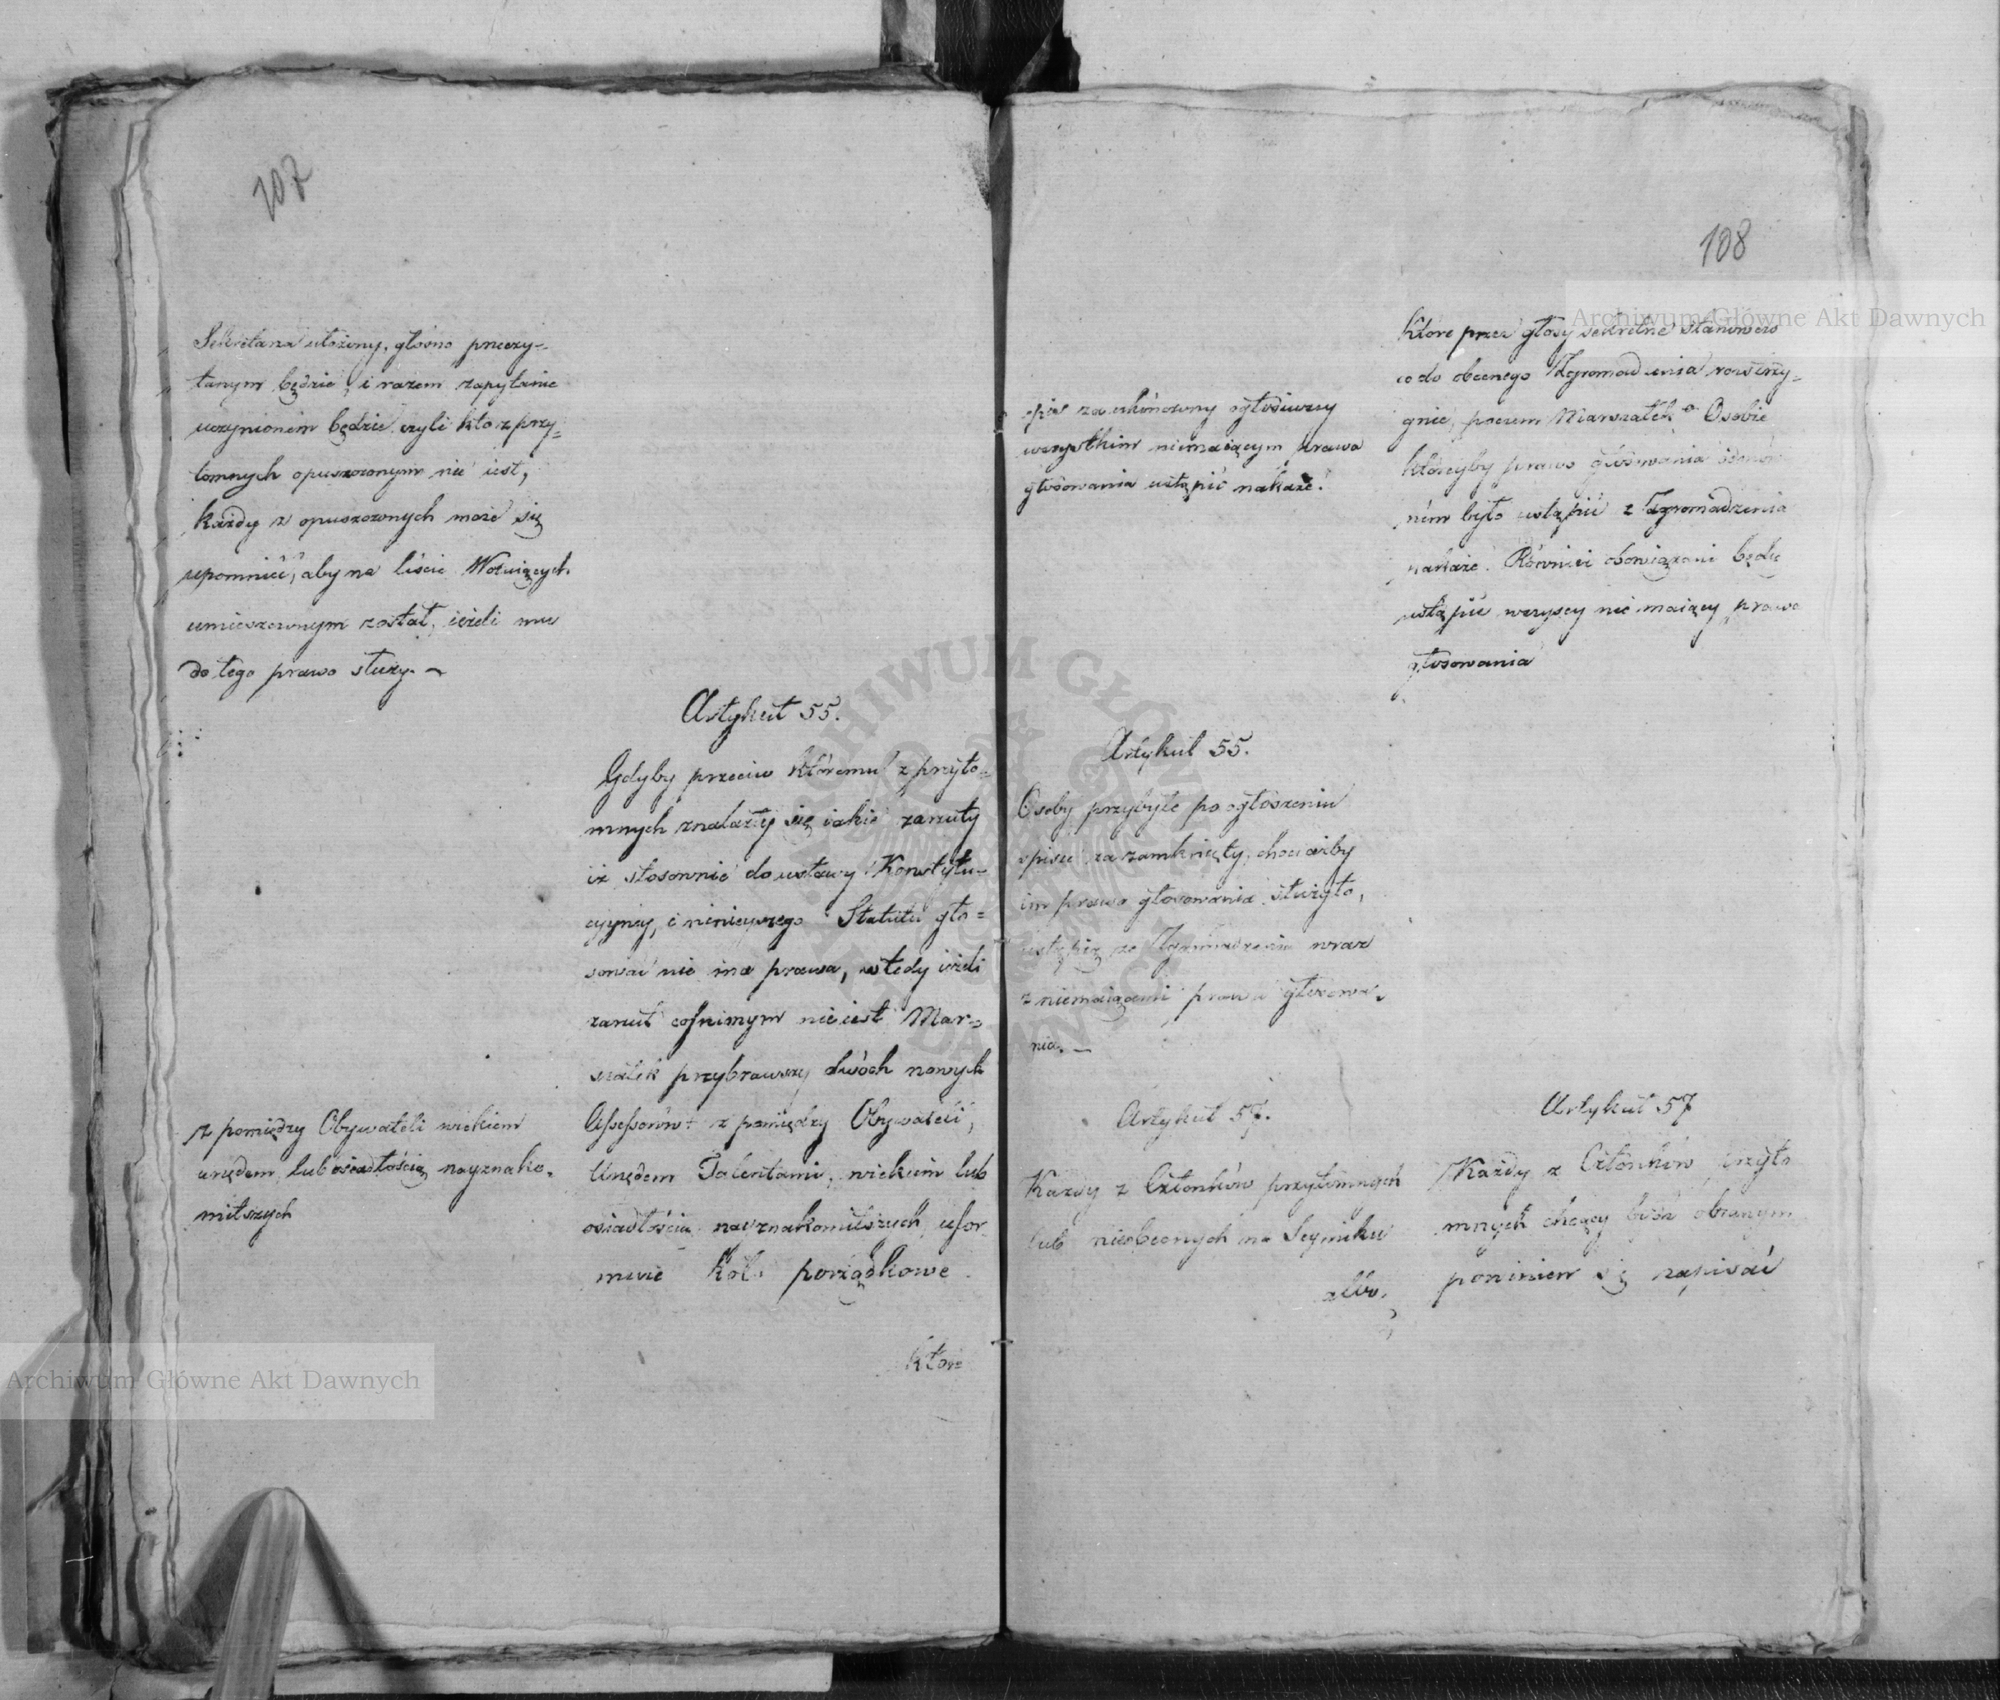 107
Sekretarza ułożony, głośno przeczy-
tanym będzie, i razem zapytanie
uczynionem będzie czyli kto z przy-
tomnych opuszczonym nie iest,
każdy z opuszczonych może się
upomnieć, aby na liście Wotuiących
umieszczonym został, ieżeli mu
do tego prawo służy. —
Artykuł 55.
Gdyby przeciw któremu z przyto=
mnych znalazły się iakie zarzuty
iż stosownie do ustawy Konstytu-
cyiney, i ninieyszego Statutu gło=
sować nie ma prawa, wtedy ieżeli
zarzut cofnionym nie iest Mar=
szałek przybrawszy dwóch nowych
Assessorów + z pomiędzy Obywateli,
Urzędem Talentami, wiekiem lub
osiadłością nayznakomitszych, ufor-
muie Koło porządkowe
które
z pomiędzy Obywateli wiekiem
urzędem, lub osiadłością nayznako-
mitszych
108
spis za ukończony ogłosiwszy
wszystkim niemaiącym prawa
głosowania ustąpić nakaże.
Artykuł 55.
Osoby przybyłe po ogłoszeniu
spisu za zamknięty, chociażby
im prawo głosowania służyło,
ustąpią ze Zgromadzenia wraz
z niemaiącemi prawa głosowa-
nia. —
Artykuł 57.
Każdy z Członków przytomnych
lub nieobecnych na Seymiku
albo
które przez głosy sekretne stanowczo
co do obecnego Zgromadzenia rozstrzy=
gnie, poczem Marszałek Osobie
któreyby prawo głosowania odmówio
ném było ustąpić z Zgromadzenia
nakaże. Również obowiązani będą
ustąpić wszyscy nie maiący prawa
głosowania
Artykuł 57
Każdy z Członków przyto
mnych chcący bydź obranym
powinien się zapisać
Archiwum Główne Akt Dawnych
Archiwum Główne Akt Dawnych
ARCHIWUM GŁÓWNE AKT DAWNYCH